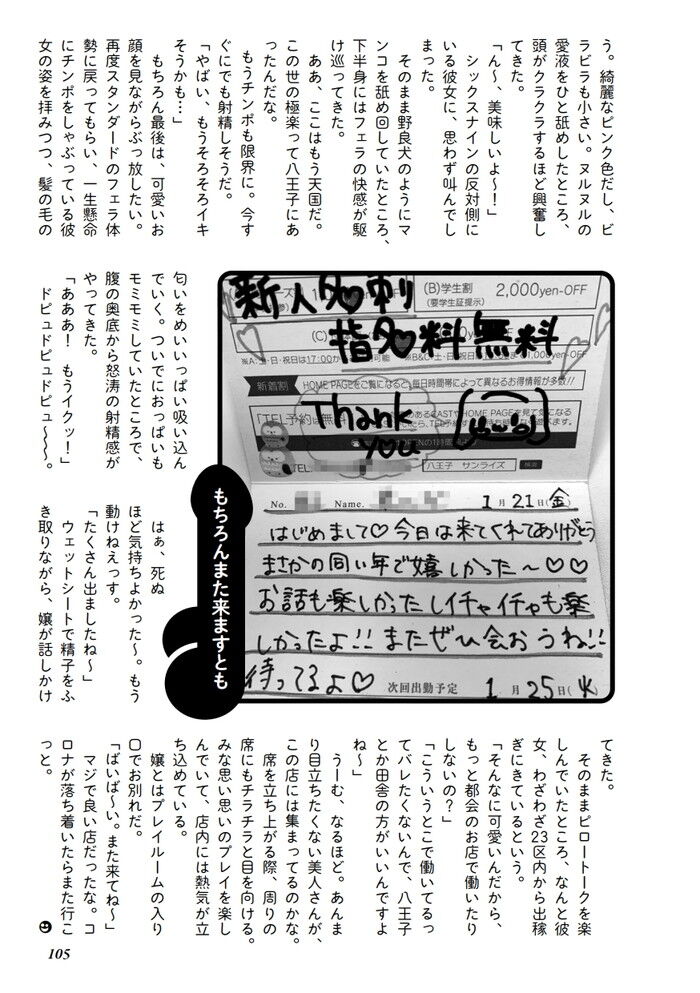 う。綺麗なピンク色だし、ビ
ラビラも小さい。ヌルヌルの
愛液をひと舐めしたところ、
頭がクラクラするほど興奮し
てきた。
「ん〜、美味しいよ〜！」
シックスナインの反対側に
いる彼女に、思わず叫んでし
まった。
そのまま野良犬のようにマ
ンコを舐め回していたところ、
下半身にはフェラの快感が駆
け巡ってきた。
ああ、ここはもう天国だ。
この世の極楽って八王子にあ
ったんだな。
もうチンポも限界に。今す
ぐにでも射精しそうだ。
「やばい、もうそろそろイキ
そうかも…」
もちろん最後は、可愛いお
顔を見ながらぶっ放したい。
再度スタンダードのフェラ体
勢に戻ってもらい、一生懸命
にチンポをしゃぶっている彼
女の姿を拝みつつ、髪の毛の
匂いをめいいっぱい吸い込ん
でいく。ついでにおっぱいも
モミモミしていたところで、
腹の奥底から怒涛の射精感が
やってきた。
「あああ！　もうイクッ！」
ドピュドピュドピュ〜〜〜。
はぁ、死ぬ
ほど気持ちよかった〜。もう
動けねえっす。
「たくさん出ましたね〜」
ウェットシートで精子をふ
き取りながら、嬢が話しかけ
新人名刺
指名料無料
(B)学生割
(要学生証提示)
2,000yen-OFF
新着割
HOME PAGEをご覧になると毎日時間帯によって異なるお得情報が多数!!
Thank
you
八王子 サンライズ
検索
No.
Name.
1月21日(金)
はじめまして♡今日は来てくれてありがとう
まさかの同い年で嬉しかった〜♡♡
お話も楽しかったしイチャイチャも楽
しかったよ!!またぜひ会おうね!!
待ってるよ♡
次回出勤予定
1月25日(火)
もちろんまた来ますとも
てきた。
そのままピロートークを楽
しんでいたところ、なんと彼
女、わざわざ23区内から出稼
ぎにきているという。
「そんなに可愛いんだから、
もっと都会のお店で働いたり
しないの？」
「こういうとこで働いてるっ
てバレたくないんで、八王子
とか田舎の方がいいんですよ
ね〜」
うーむ、なるほど。あんま
り目立ちたくない美人さんが、
この店には集まってるのかな。
席を立ち上がる際、周りの
席にもチラチラと目を向ける。
みな思い思いのプレイを楽し
んでいて、店内には熱気が立
ち込めている。
嬢とはプレイルームの入り
口でお別れだ。
「ばいば〜い。また来てね〜」
マジで良い店だったな。コ
ロナが落ち着いたらまた行こ
っと。
105